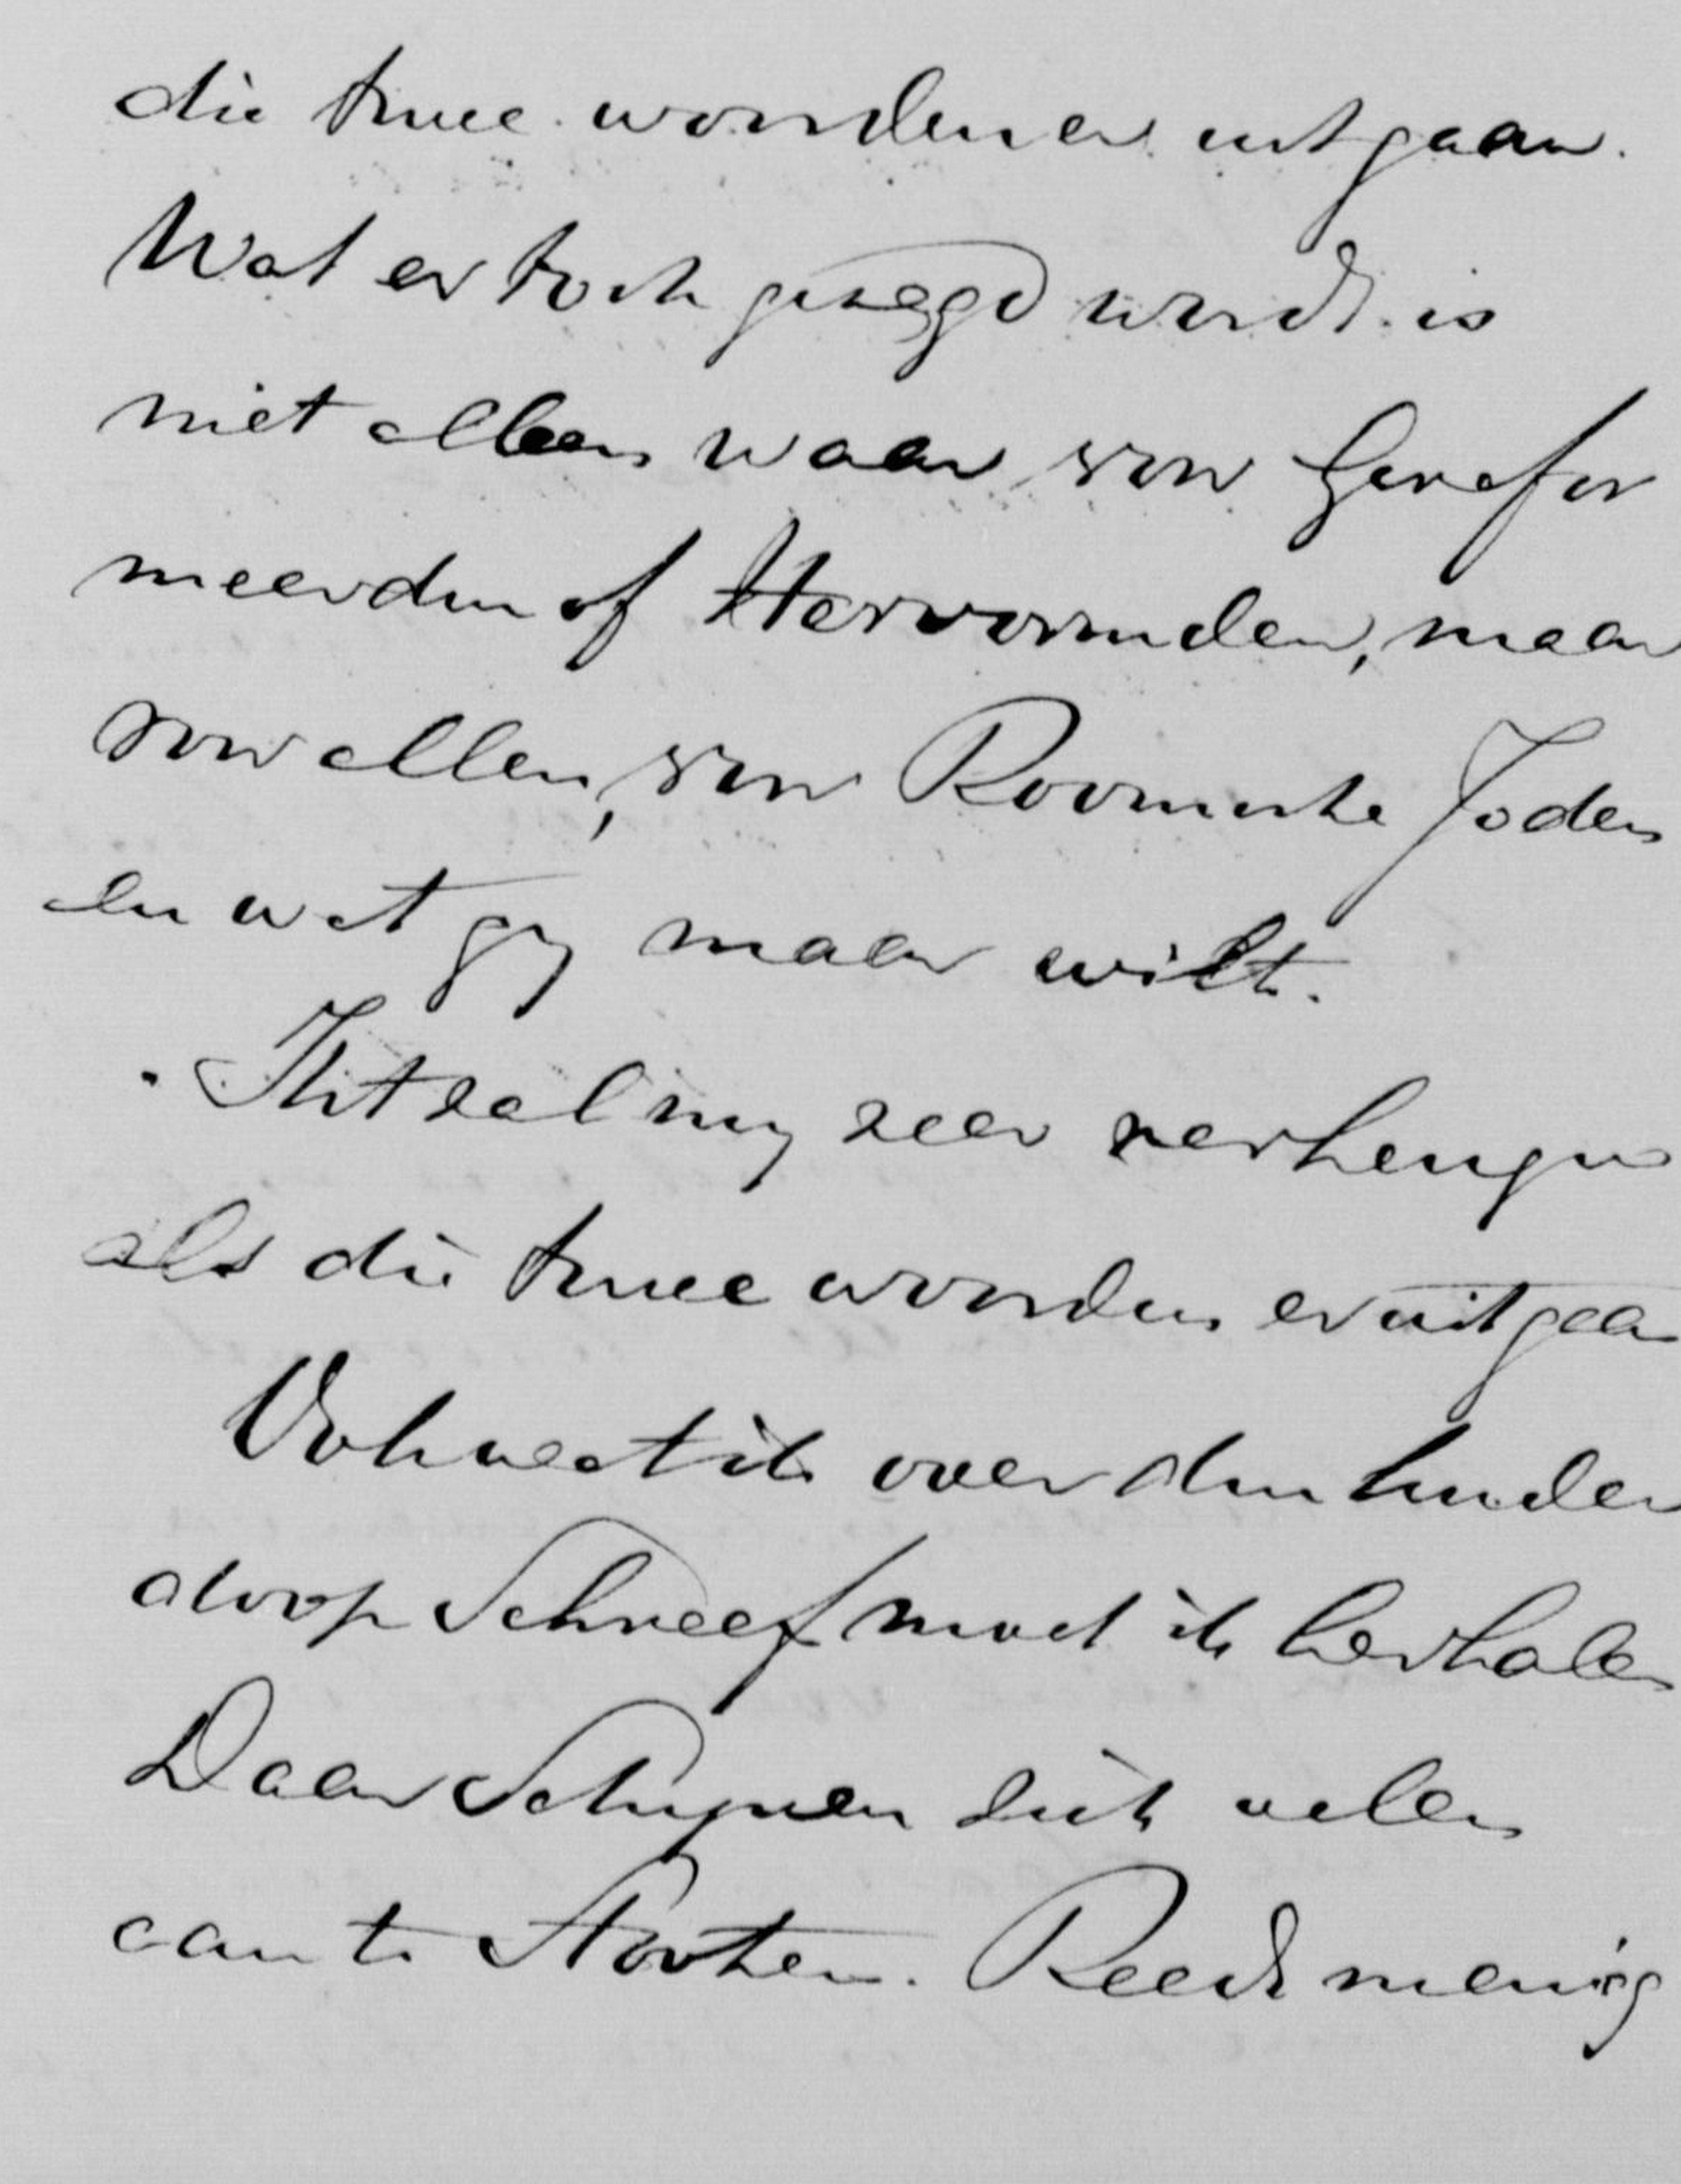 die twee woorden er uitgaan.
Wat er toch gezegd wordt is
niet alleen waar von Gerefor
meerden of Hervormden, maar
von allen, von Roomsche Joden
en wat gij maar wilt.
Het zal mij zeer verheugen
als die twee woorden er uitgaan
Ook wat ik over den kinder
doop Schreef moet ik herhalen
Daar Schijnen zich velen
aan te Stooten. Reeds menig